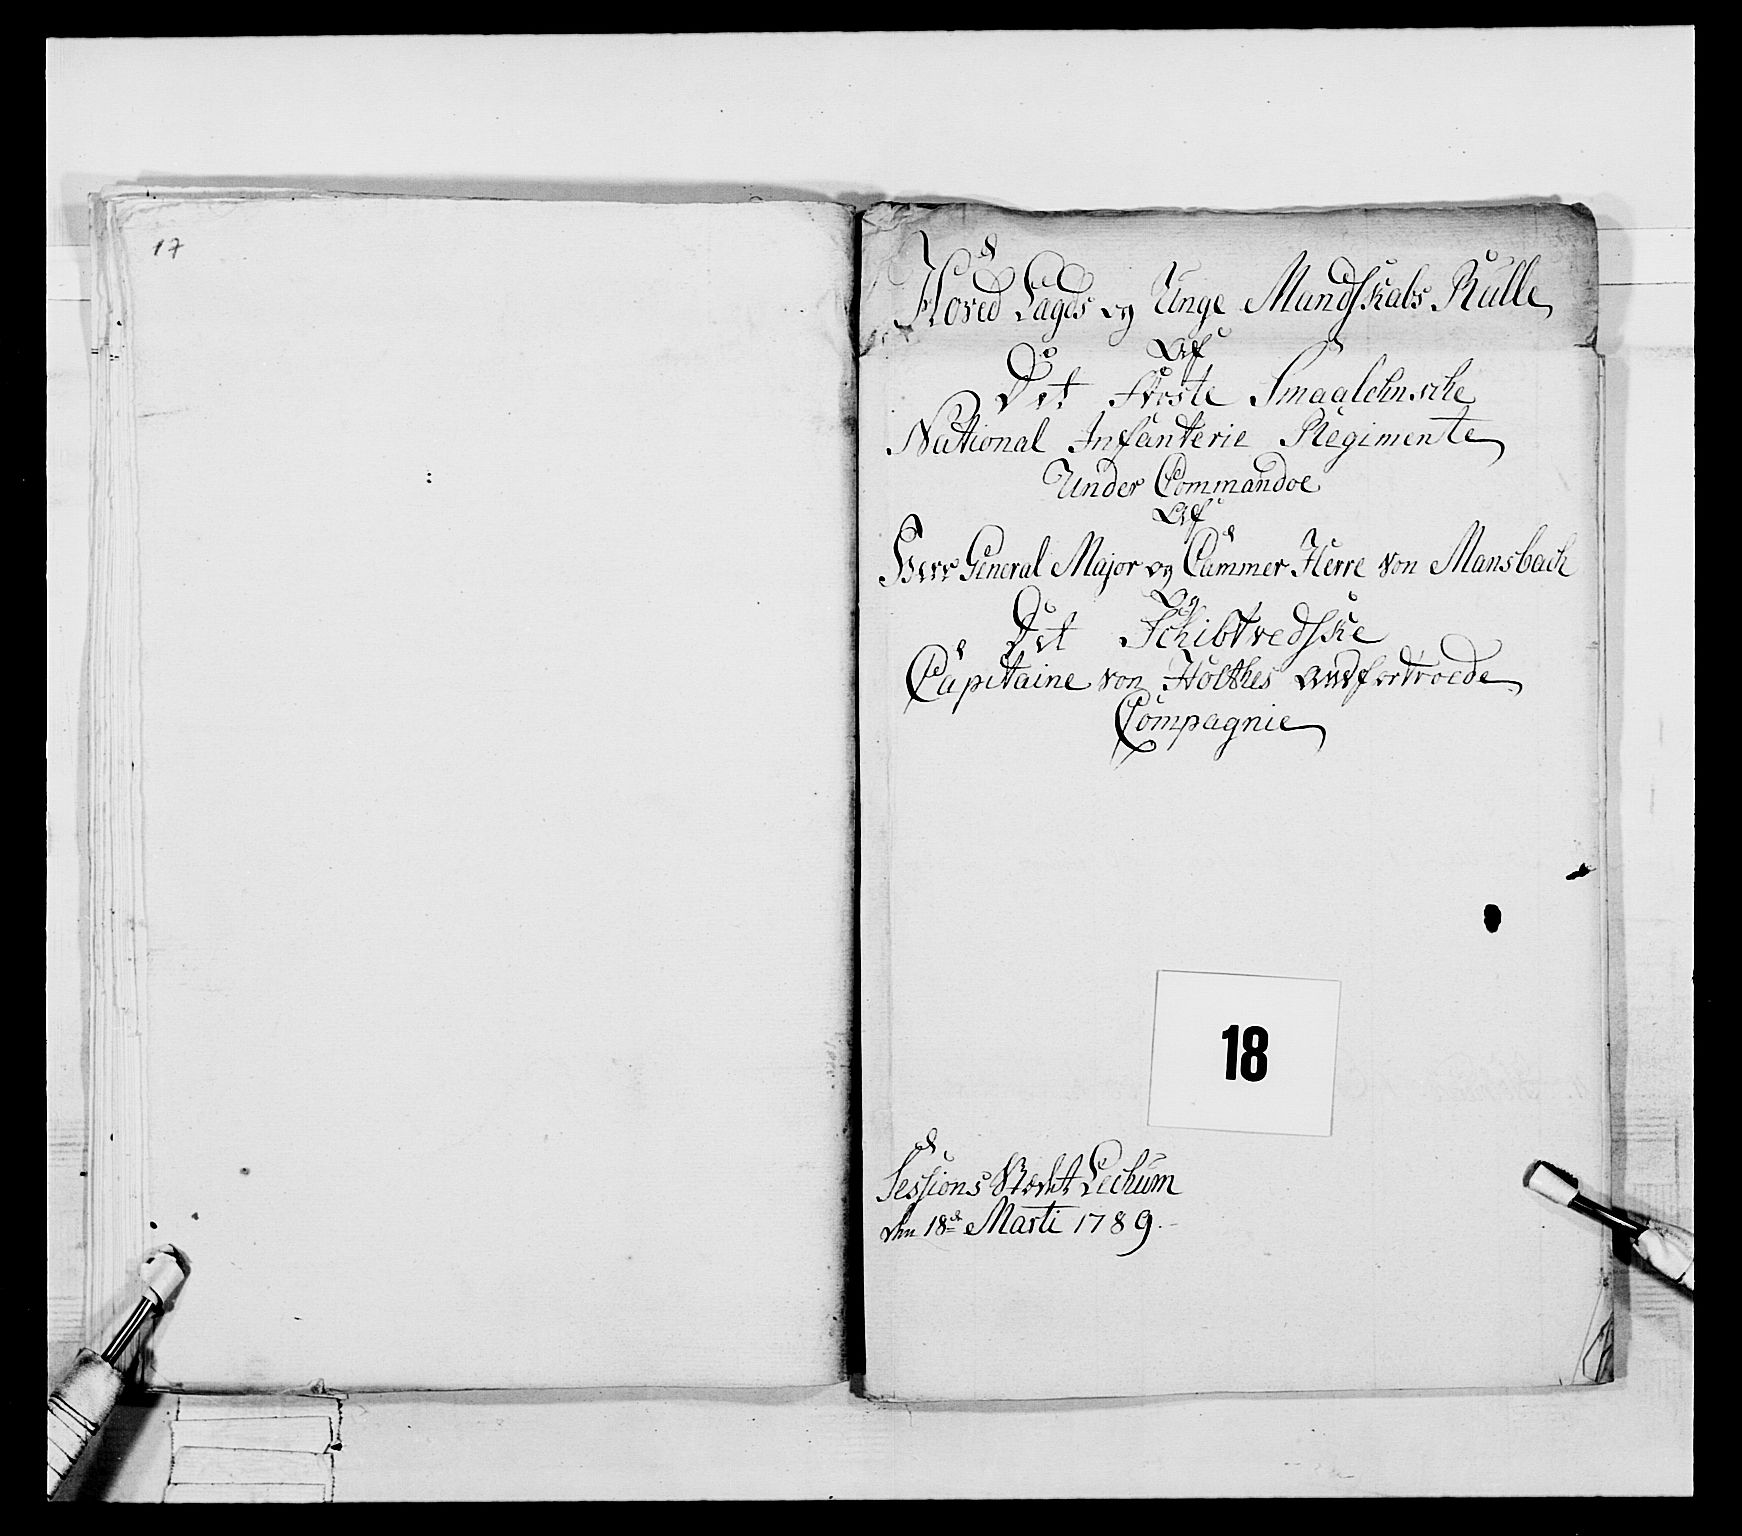 17
Hoved Lægds og Unge Mandskabs Rulle
Af
Det Første Smaalehnsche
National Infanterie Regimente
Under Commandoe
Af
Herr General Major og Cammer Herre von Mansbach
Og
Det Schibtvedske
Capitaine von Holthes anfortroede
Compagnie
18
Sessions Stædet Lechum
den 18de Marti 1789.